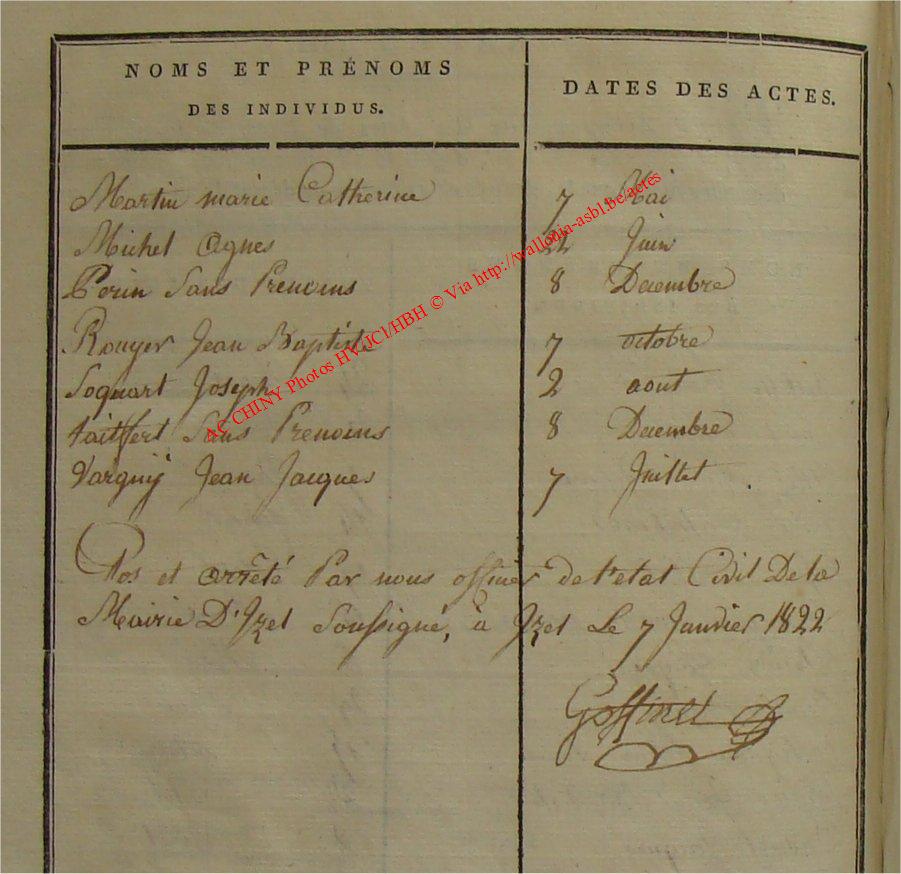 NOMS ET PRÉNOMS
DES INDIVIDUS.
DATES DES ACTES.
Martin marie Catherine 7 Mai
Michel agnes 22 Juin
Perin Sans Prenoms 8 Decembre
Rouyer Jean Baptiste 7 octobre
Soquart Joseph 2 aout
taitfert Sans Prenoms 8 Decembre
Varguij Jean Jacques 7 Juillet
Clos et arrêté Par nous officier de l'etat Civil De la
Mairie D'Izel Soussigné, à Izel Le 7 Janvier 1822
Goffinet
AC CHINY Photos HV.JCl/HBH © Via http://wallonia-asbl.be.actes